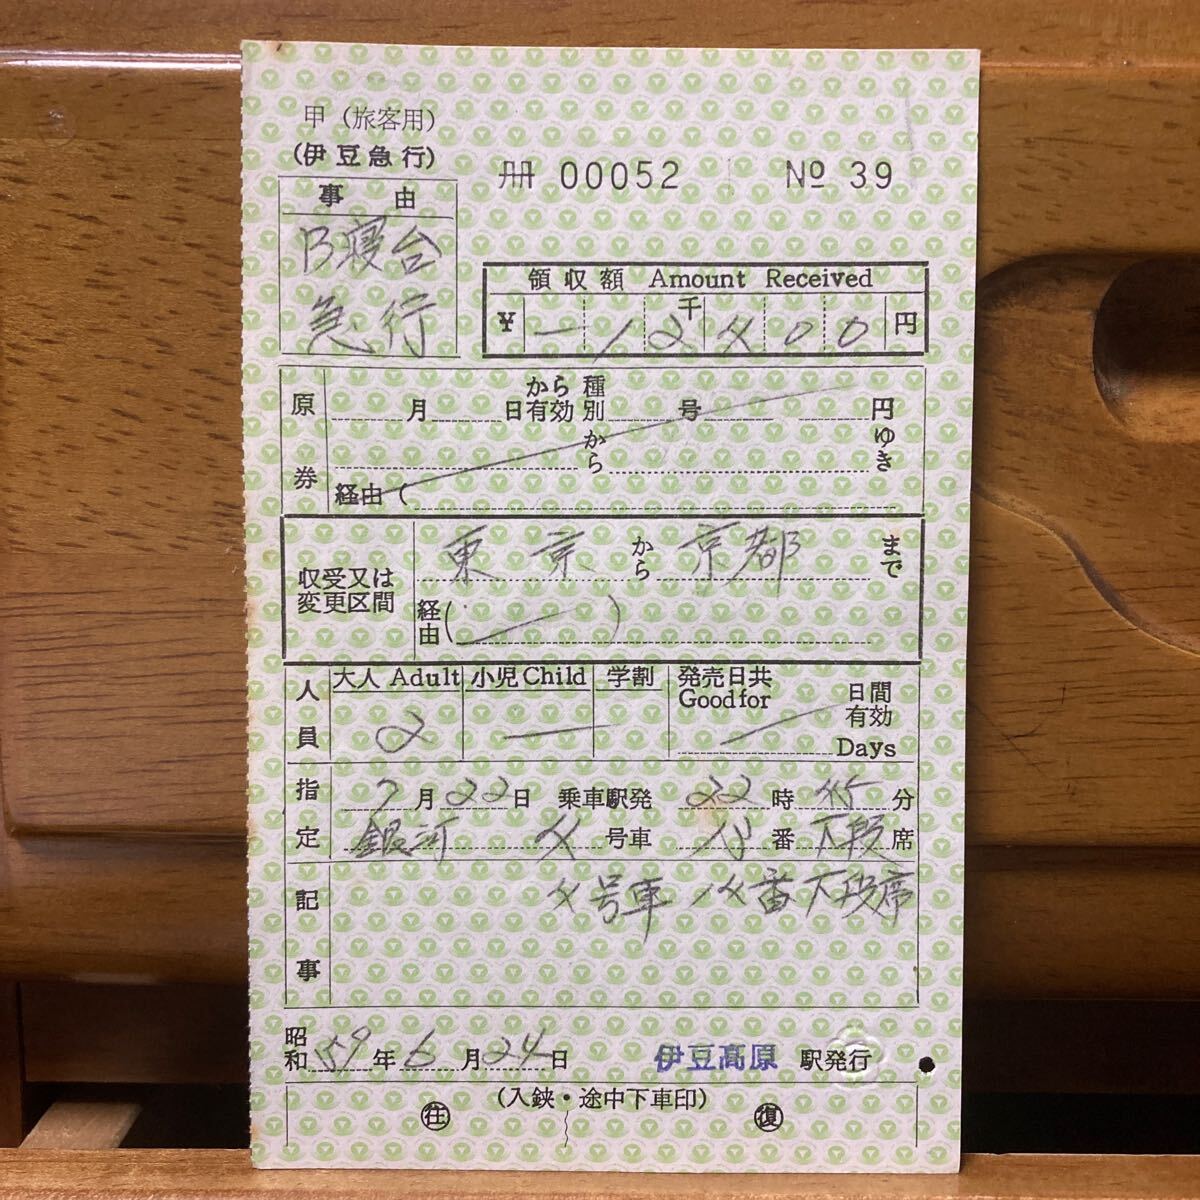 甲(旅客用)
(伊豆急行)
冊 00052 № 39
事由
B寝台
急行
領収額 Amount Received
¥ 一12千400円
原券
月 日から有効 種別 号 円
から ゆき
経由(
収受又は変更区間
東京から京都まで
経由( )
人員
大人 Adult 小児 Child 学割 発売日共 Good for 日間有効 Days
2
指定
7月22日 乗車駅発 22時45分
銀河 4号車 13番 下段席
記事
4号車 14番下段席
昭和59年6月24日 伊豆高原 駅発行
(入鋏・途中下車印)
往 復